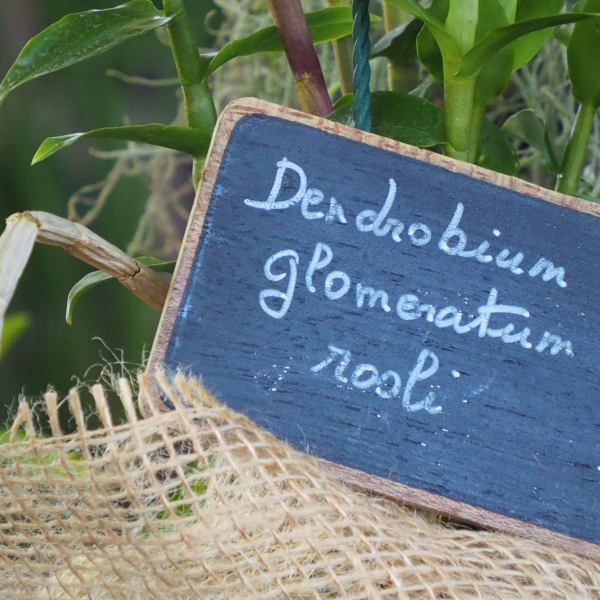 Dendrobium
glomeratum
rosli